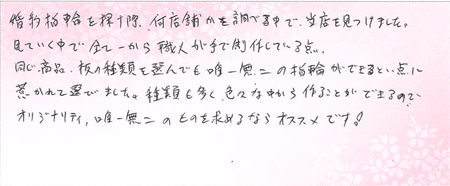 婚約指輪を探す際、何店舗かを調べる中で、当店を見つけました。
見ていく中で全て一から職人が手で創作している点、
同じ商品、板の種類を選んでも唯一無二の指輪ができるという点に
惹かれて選びました。種類も多く、色々な中から作ることができるので
オリジナリティ、唯一無二のものを求めるならオススメです!